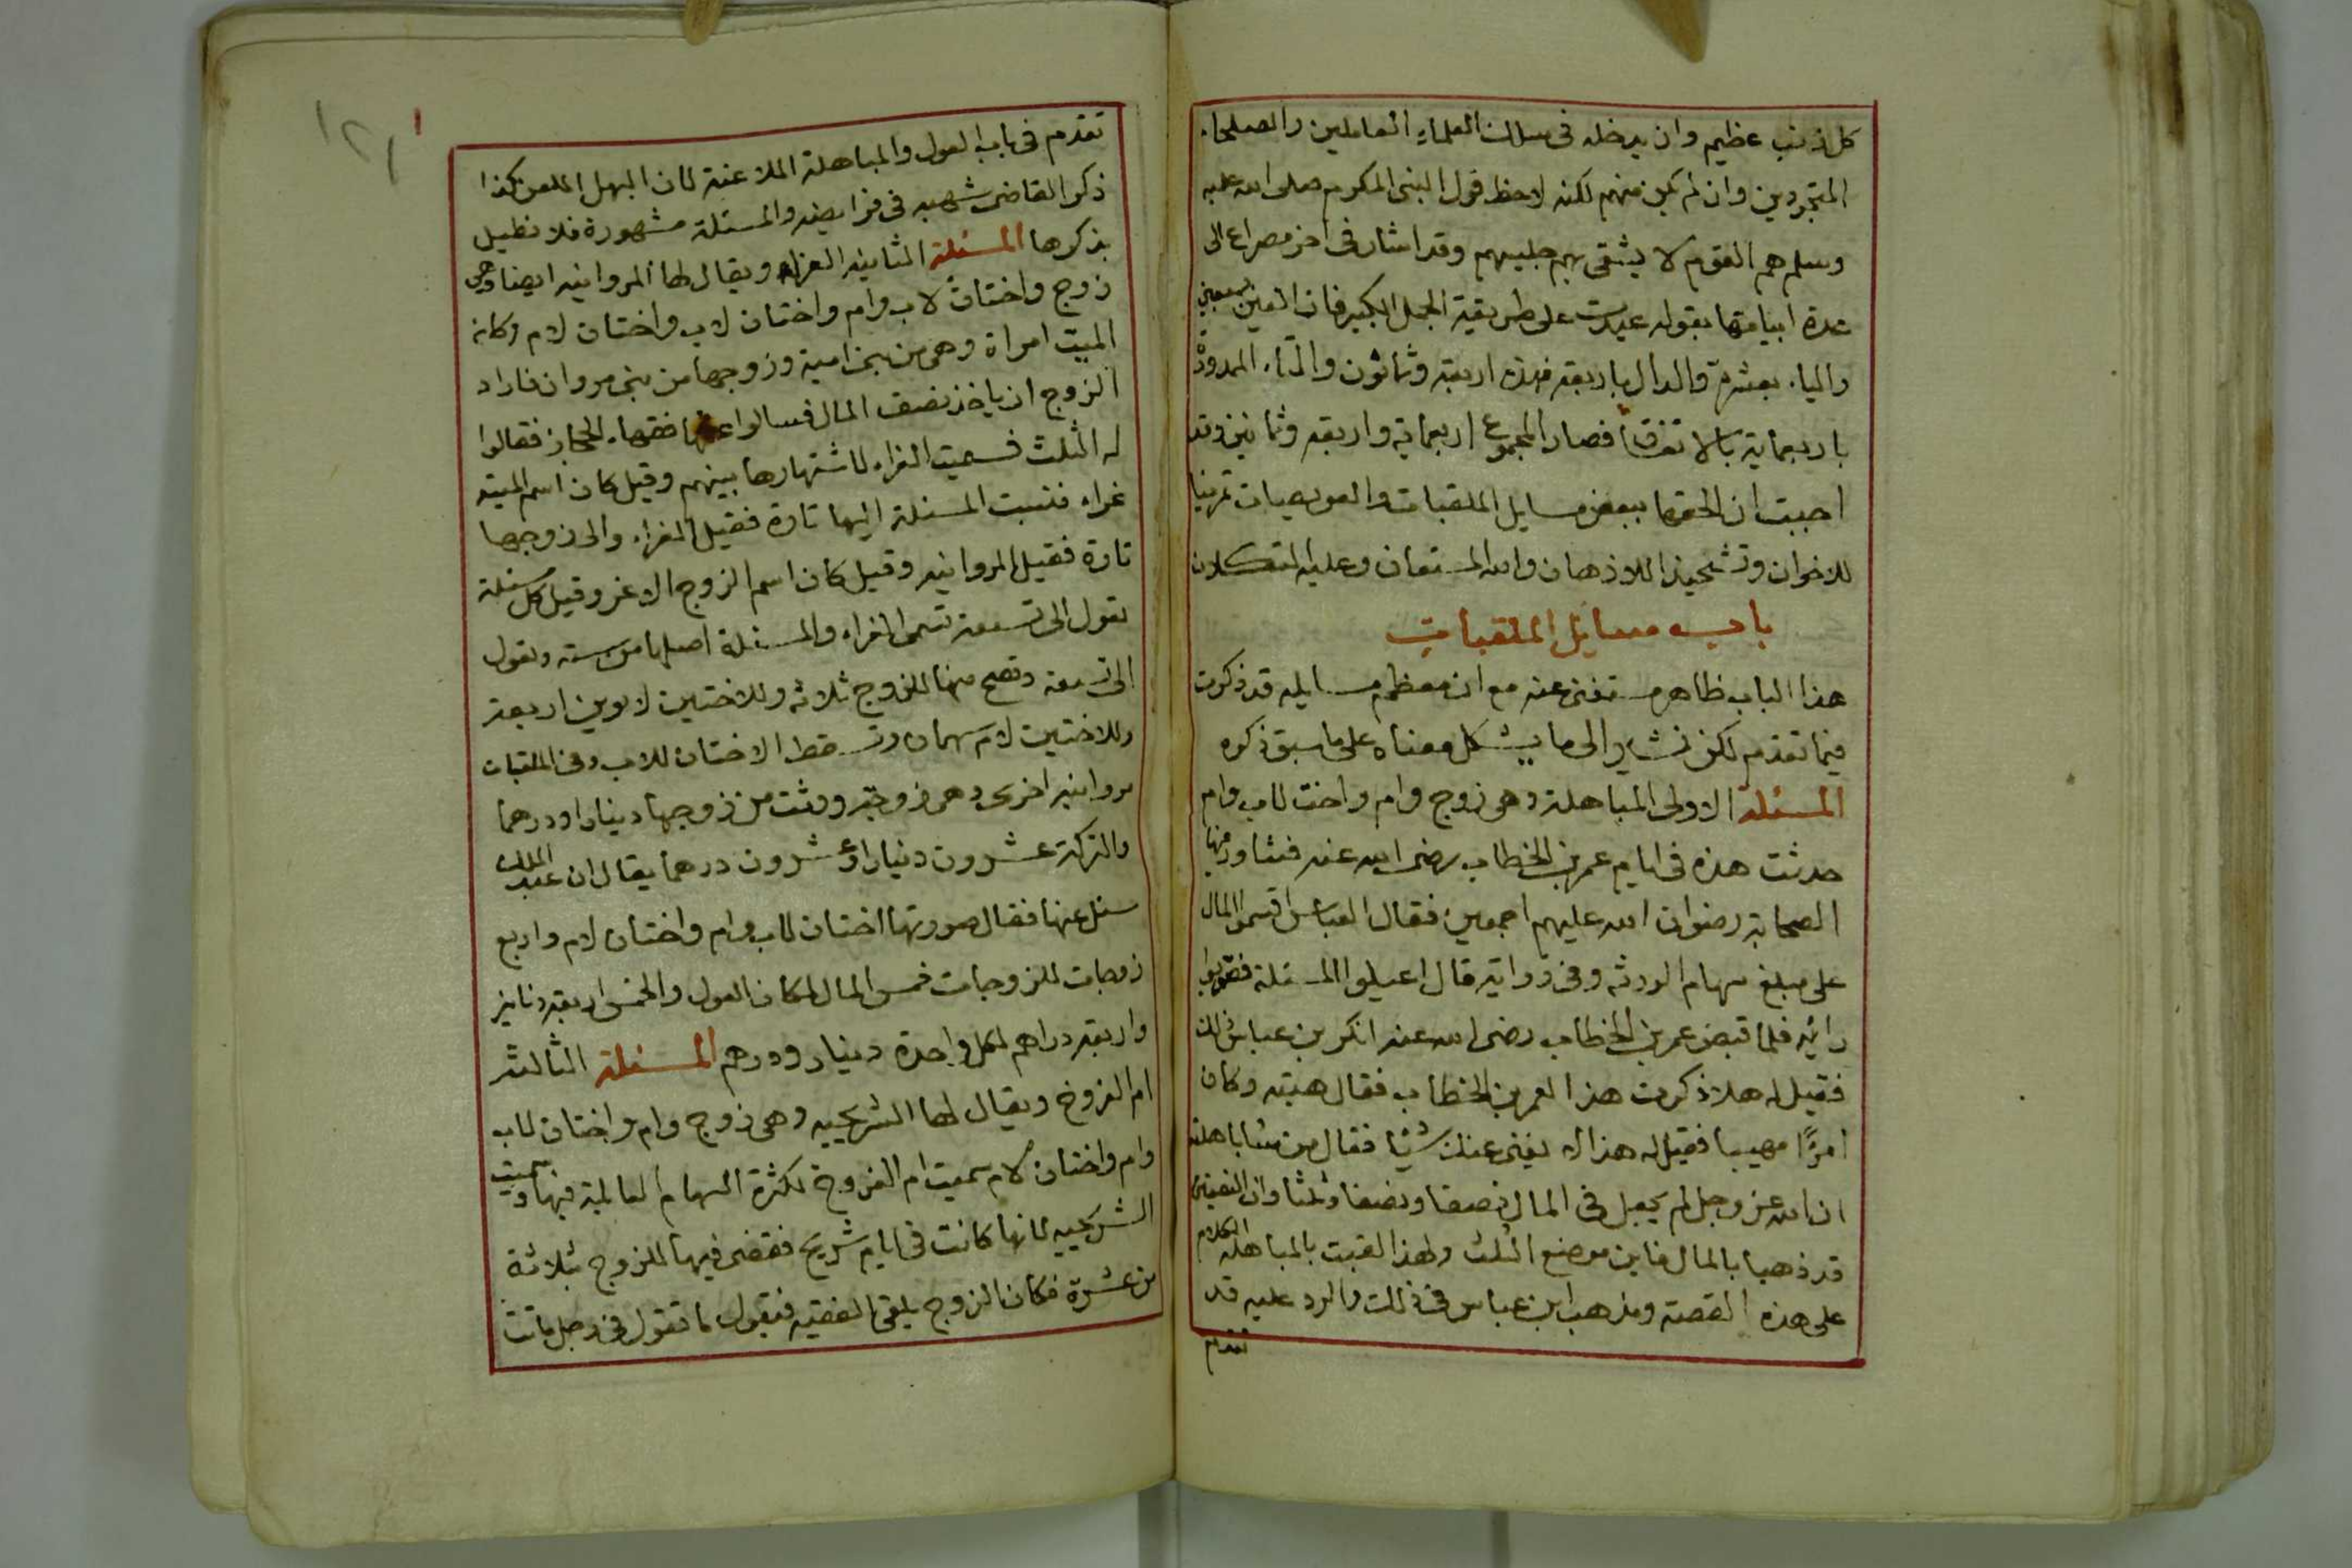 كل ذنب عظيم وان يدخله فى سلك العلماء العاملين والصلحاء
المتجردين وان لم يكن منهم لكنه لاحظ قول النبى المكرم صلى الله عليه
وسلم هم القوم لا يشقى بهم جليسهم وقد اشار فى اخر مصراع الى
عدة ابياتها بقوله على طريقة الجمل الكبير فان العين بسبعين
واليا. بعشرة والدال باربعة فهذه اربعة وثمانون والتاء الممدودة
باربعماية بالاتفاق فصار المجموع اربعماية واربعة وثمانين وقد
احببت ان الحقها ببعض مسايل الملقبات والعويصيات تمرينا
للاخوان وتشحيذا للاذهان والله المستعان وعليه التكلان
باب مسايل الملقبات
هذا الباب ظاهر مستغنى عنه مع ان معظم مسايله قد ذكرت
فيما تقدم لكن نشير الى ما يشكل معناه على ما سبق ذكره
المسئلة الاولى المباهلة وهى زوج وام واخت لاب وام
حدثت هذه فى ايام عمر بن الخطاب رضى الله عنه فشاور فيها
الصحابة رضوان الله عليهم اجمعين فقال العباس اقسموا المال
على مبلغ سهام الورثه وفى رواية قال اعيلوا المسئلة فصوبوا
رائيه فلما قبض عمر بن الخطاب رضى الله عنه انكر بن عباس ذلك
فقيل له هلا ذكرت هذا لعمر بن الخطاب فقال هبته وكان
امرًا مهيبا فقيل له هذا لا يغنى عنك شيًا فقال من شا باهلته
ان الله عز وجل لم يجعل فى المال نصفا ونصفا وثلثا وان النصفين
قد ذهبا بالمال فاين موضع الثلث ولهذا لقبت بالمباهله الكلام
على هذه القصة ومذهب ابن عباس فى ذلك والرد عليه قد
تقدم
١٢١
تقدم فى باب العول والمباهلة الملاعنة لان البهل اللعن كذا
ذكر القاضى شهبه فى فرايضه والمسئلة مشهورة فلا نطيل
بذكرها المسئلة الثانيه الغراء ويقال لها المروانيه ايضا وهى
زوج واختان لاب وام واختان لاب واختان لام وكانه
الميت امراة وهى من بنى امية وزوجها من بنى مروان فاراد
الزوج ان ياخذ نصف المال فسالوا عنها فقهاء الحجاز فقالوا
له الثلث فسميت الغراء لاشتهارها بينهم وقيل كان اسم الميتة
غراء فنسبت المسئلة اليها تارة فقيل الغراء والى زوجها
تارة فقيل المروانيه وقيل كان اسم الزوج الاغر وقيل كل مسئلة
تعول الى تسعة تسمى الغراء والمسئلة اصلها من سته وتعول
الى تسعة وتصح منها للزوج ثلاثة وللاختين لابوين اربعة
وللاختين لام سهمان وتسقط الاختان للاب وفى الملقبات
مروانيه اخرى وهى زوجة ورثت من زوجها دينارا ودرهما
والتركة عشرون دينارا وعشرون درهما يقال ان عبد الملك
سئل عنها فقال صورتها اختان لاب وام واختان لام واربع
زوجات للزوجات خمس المال لمكان العول والخمس اربعة دنانير
واربعة دراهم لكل واحدة دينار ودرهم المسئلة الثالثه
ام الفروخ ويقال لها الشريحيه وهى زوج وام واختان لاب
وام واختان لام سميت ام الفروخ لكثرة السهام العالية فيها وسميت
الشريحيه لانها كانت فى ايام شريح فقضى فيها للزوج بثلاثة
من عشرة فكان الزوج يلقى الفقيه فيقول ما تقول فى رجل ماتت